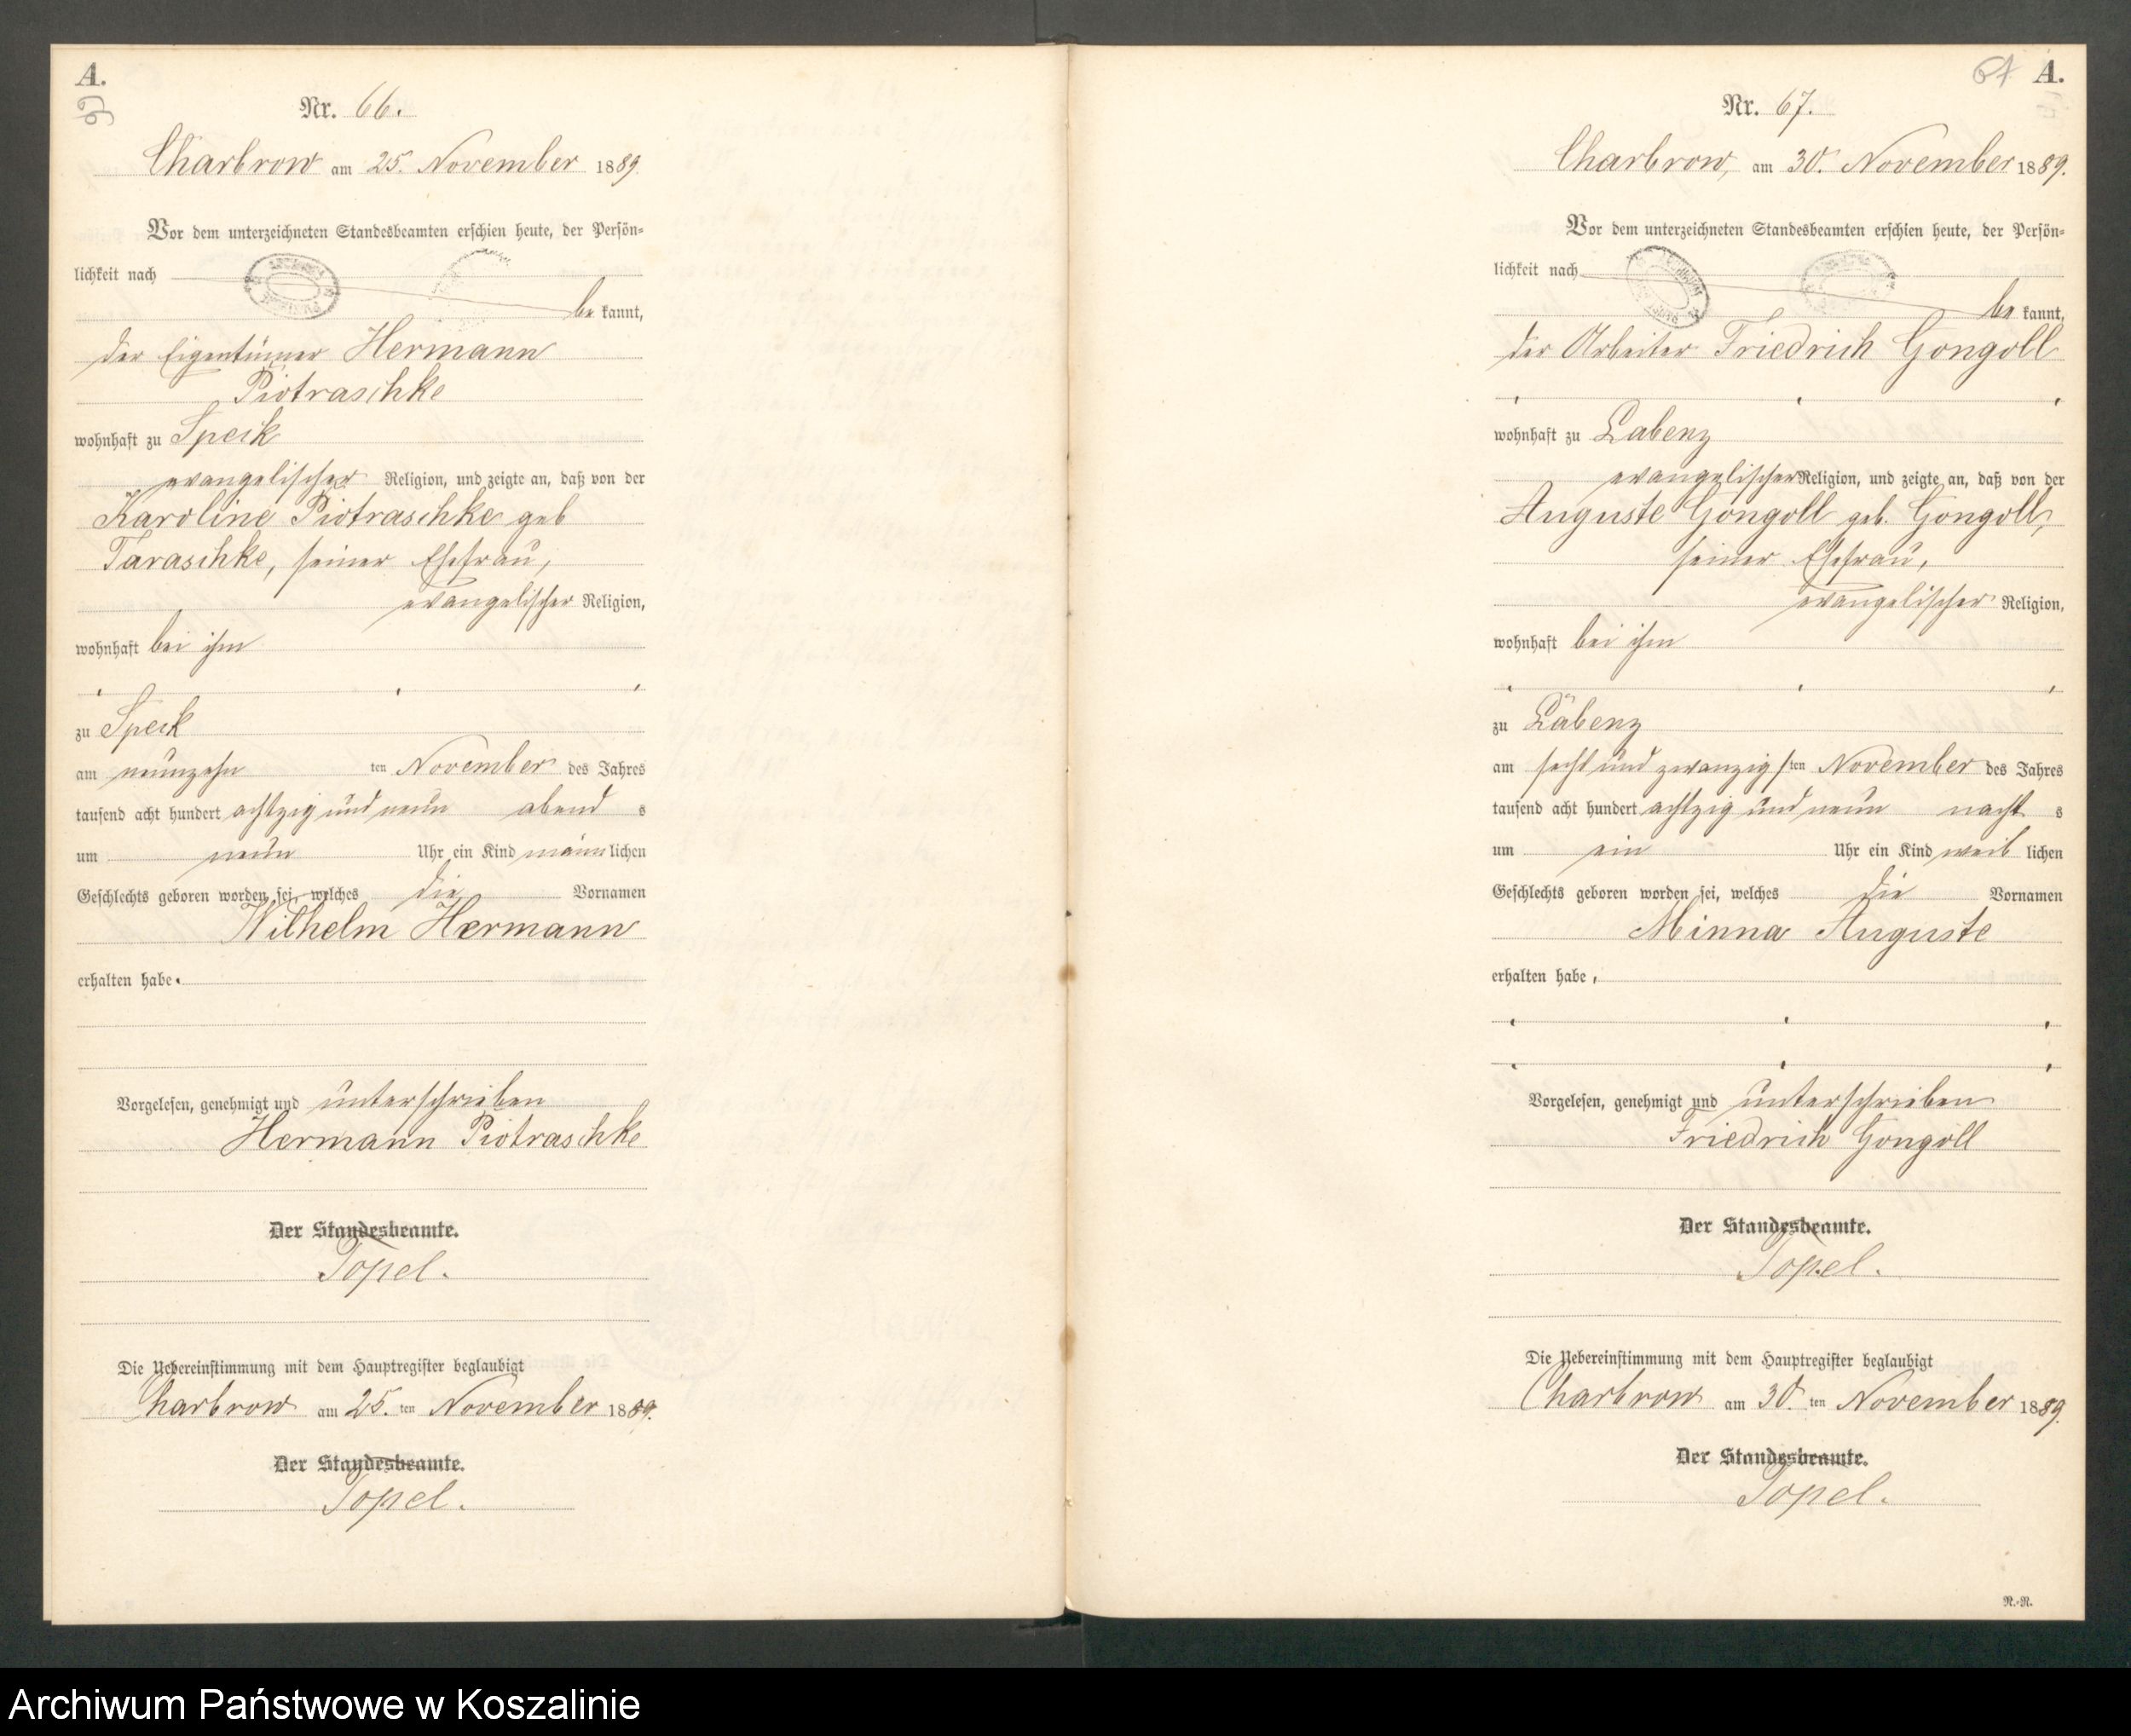 A.
66
Nr. 66.
Charbrow am 25. November 1889.
Vor dem unterzeichneten Standesbeamten erschien heute, der Persön-
lichkeit nach
be kannt,
der Eigentümer Hermann
Piotraschke
wohnhaft zu Speck
evangelischer Religion, und zeigte an, daß von der
Karoline Piotraschke geb
Taraschke, seiner Ehefrau,
evangelischer Religion,
wohnhaft bei ihm
zu Speck
am neunzehn ten November des Jahres
tausend acht hundert achtzig und neun abend s
um neun Uhr ein Kind männlichen
Geschlechts geboren worden sei, welches die Vornamen
Wilhelm Hermann
erhalten habe.
Vorgelesen, genehmigt und unterschrieben
Hermann Piotraschke
Der Standesbeamte.
Topel.
Die Uebereinstimmung mit dem Hauptregister beglaubigt
Charbrow am 25. ten November 1889.
Der Standesbeamte.
Topel.
67 A.
Nr. 67.
Charbrow, am 30. November 1889.
Vor dem unterzeichneten Standesbeamten erschien heute, der Persön-
lichkeit nach
be kannt,
der Arbeiter Friedrich Gongoll
wohnhaft zu Labenz
evangelischer Religion, und zeigte an, daß von der
Auguste Gongoll geb. Gongoll,
seiner Ehefrau,
evangelischer Religion,
wohnhaft bei ihm
zu Labenz
am sechs und zwanzigsten November des Jahres
tausend acht hundert achtzig und neun nacht s
um ein Uhr ein Kind weib lichen
Geschlechts geboren worden sei, welches die Vornamen
Minna Auguste
erhalten habe,
Vorgelesen, genehmigt und unterschrieben
Friedrich Gongoll
Der Standesbeamte.
Topel.
Die Uebereinstimmung mit dem Hauptregister beglaubigt
Charbrow am 30. ten November 1889.
Der Standesbeamte.
Topel.
R.-R.
Archiwum Państwowe w Koszalinie